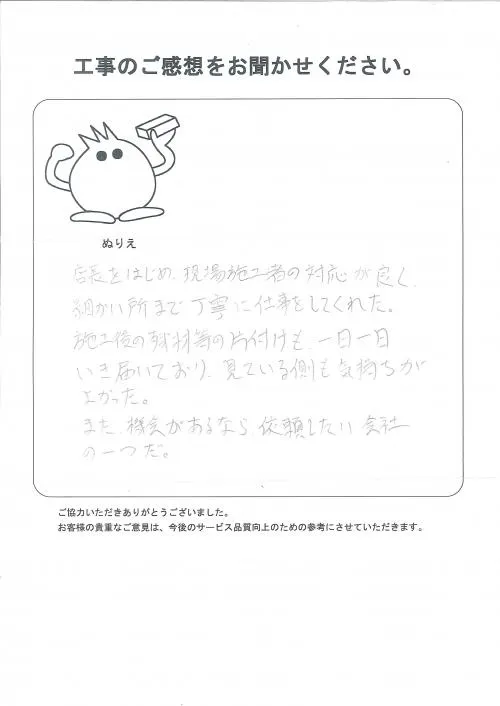 工事のご感想をお聞かせください。
ぬりえ
店長をはじめ、現場施工者の対応が良く、
細かい所まで丁寧に仕事をしてくれた。
施工後の残材等の片付けも、一日一日
いき届いており、見ている側も気持ちが
よかった。
また、機会があるなら、依頼したい会社
の一つだ。
ご協力いただきありがとうございました。
お客様の貴重なご意見は、今後のサービス品質向上のための参考にさせていただきます。